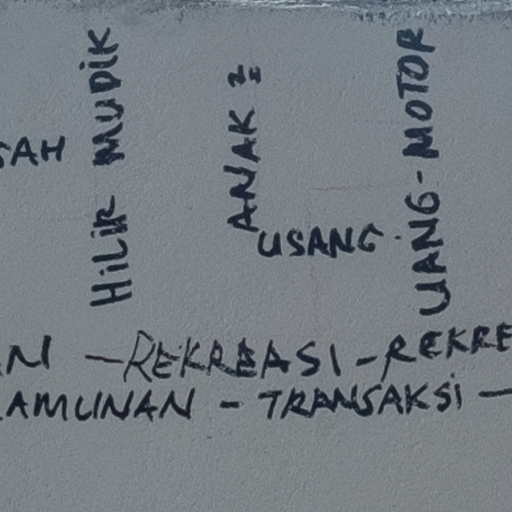 SAH
HiLiR MUDiK
ANAK 2
USANG
UANG-MOTOR
AN - REKREASI - REKRE
AMUNAN - TRANSAKSi -